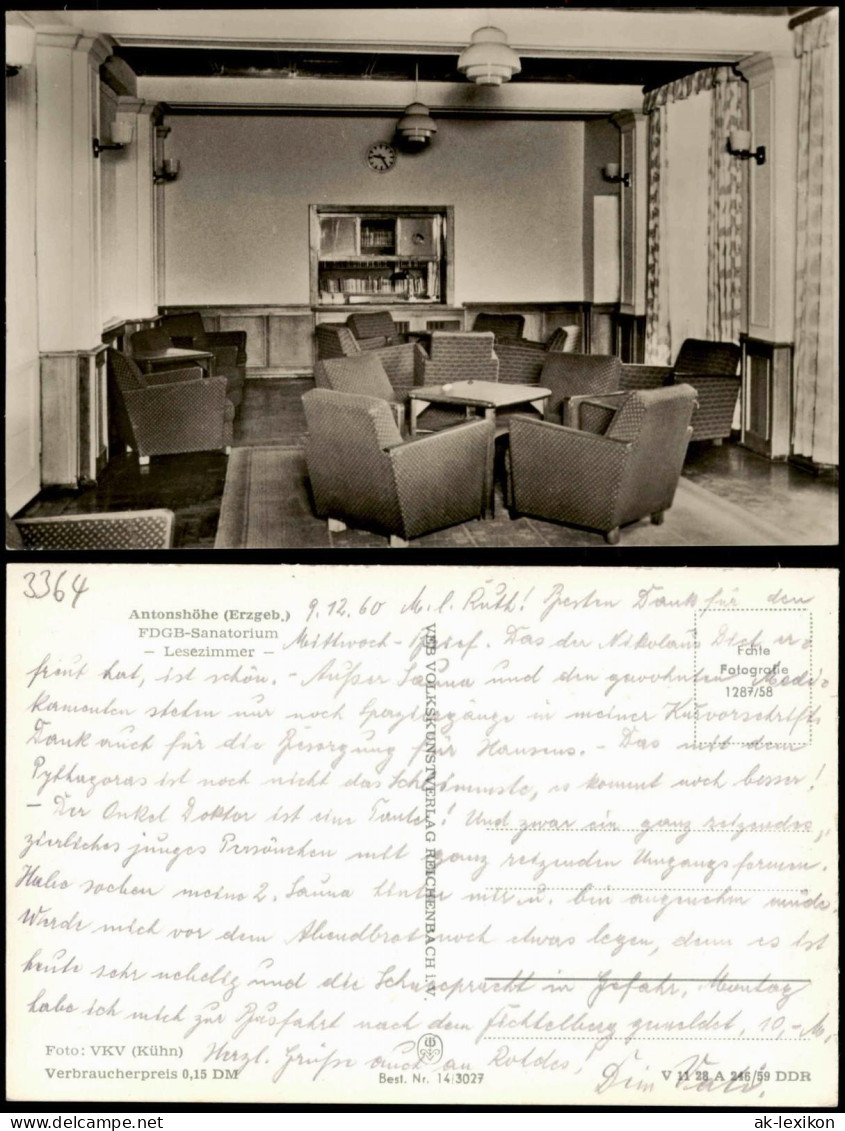 3364
Antonshöhe (Erzgeb.)
FDGB-Sanatorium
– Lesezimmer –
Echte
Fotografie
1287/58
9.12.60 M. l. Ruth! Besten Dank für den
Mittwoch-Brief. Das der Nikolaus Dich er-
freut hat, ist schön. – Außer Sauna und den gewohnten Medi-
kamenten stehen nur noch Spaziergänge in meiner Kurvorschrift.
Dank auch für die Besorgung für Hausens. – Das mit dem
Pythagoras ist noch nicht das Schlimmste, es kommt noch besser!
– Der Onkel Doktor ist eine Tante! Und zwar ein ganz reizendes,
zierliches junges Persönchen mit ganz reizenden Umgangsformen.
Habe soeben meine 2. Sauna hinter mir u. bin angenehm müde.
Werde mich vor dem Abendbrot noch etwas legen, denn es ist
heute sehr nebelig und die Schneepracht in Gefahr. Montag
habe ich mich zur Busfahrt nach dem Fichtelberg gemeldet, 10,- M.
Herzl. Grüße auch an
Dein Vati.
VEB VOLKSKUNSTVERLAG REICHENBACH i. V.
Foto: VKV (Kühn)
Verbraucherpreis 0,15 DM
Best. Nr. 14/3027
V 11 28 A 246/59 DDR
ak-lexikon